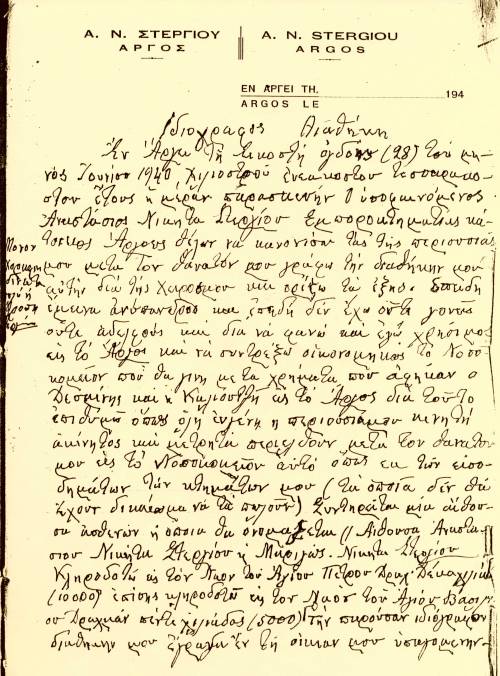 Α. Ν. ΣΤΕΡΓΙΟΥ
ΑΡΓΟΣ
A. N. STERGIOU
ARGOS
ΕΝ ΑΡΓΕΙ ΤΗ,
ARGOS LE
194
Ιδιόγραφος Διαθήκη
Εν Άργει τη εικοστή ογδόη (28) του μη-
νός Ιουνίου 1940, χιλιοστού ενεακοστού τεσσαρακο-
στού έτους ημέραν παρασκευήν Ο υποφαινόμενος
Αναστάσιος Νικήτα Στεργίου Εμποροκτηματίας κά-
τοικος Άργους θέλων να κανονίσω τας της περιουσίας
μου μετά τον θάνατόν μου γράφω την διαθήκην μου
αυτήν δια της χειρός μου και ορίζω τα εξής. επειδή
έμεινα ανύπανδρος και επειδή δεν έχω ούτε γονείς
ούτε αδελφούς και δια να φανώ και εγώ χρήσιμος
εις το Άργος και να συντρέξω οικονομικώς το Νοσο-
κομείον που θα γίνη με τα χρήματα που αφήκαν ο
Δεσμίνης και η εις το Άργος δια τούτο
επιθυμώ όπως όλη εν γένει η περιουσία μου κινητή
ακίνητος και μετρητά περιέλθουν μετά τον θάνατόν
μου εις το Νοσοκομείον αυτό όπως εκ των εισο-
δημάτων των κτημάτων μου (τα οποία δεν θα
έχουν δικαίωμα να τα πωλούν) Συντηρείται μία αίθου-
σα ασθενών η οποία θα ονομάζεται (Αίθουσα Αναστα-
σίου Νικήτα Στεργίου ή Μαριγώς Νικήτα Στεργίου
Κληροδοτώ εις τον Ναόν του Αγίου Πέτρου Δραχ. δέκα χιλιάδ.
(10000) επίσης κληροδοτώ εις τον Ναόν του Αγίου Βασιλεί-
ου Δραχμάς πέντε χιλιάδας (5000) την παρούσαν ιδιόγραφον
διαθήκην μου έγραψα εν τη οικία μου